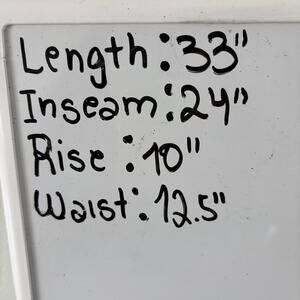 Length: 33"
Inseam: 24"
Rise: 10"
Waist: 12.5"